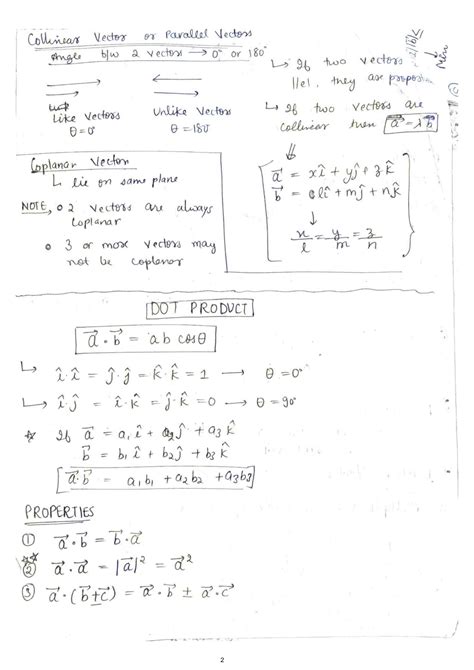 Collinear Vector or Parallel Vectors
Angle b/w 2 vectors → 0° or 180°
Like Vectors
θ = 0°
Unlike Vectors
θ = 180°
↳ If two vectors
||el, they are proportion
↳ If two vectors are
collinear then a⃗ = λb⃗
a⃗ = xî + yĵ + zk̂
b⃗ = lî + mĵ + nk̂
↓
x/l = y/m = z/n
Coplanar Vector
↳ lie on same plane
NOTE, o 2 vectors are always
coplanar
o 3 or more vectors may
not be coplanar
DOT PRODUCT
a⃗ · b⃗ = ab cosθ
↳ î·î = ĵ·ĵ = k̂·k̂ = 1 → θ = 0°
↳ î·ĵ = î·k̂ = ĵ·k̂ = 0 → θ = 90°
☆ If a⃗ = a₁î + a₂ĵ + a₃k̂
b⃗ = b₁î + b₂ĵ + b₃k̂
a⃗·b⃗ = a₁b₁ + a₂b₂ + a₃b₃
PROPERTIES
① a⃗·b⃗ = b⃗·a⃗
② a⃗·a⃗ = |a⃗|² = a⃗²
③ a⃗·(b⃗±c⃗) = a⃗·b⃗ ± a⃗·c⃗
2